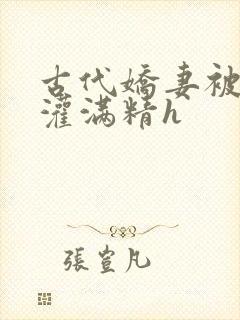 古代嬌妻被
灌滿精h
張萱凡